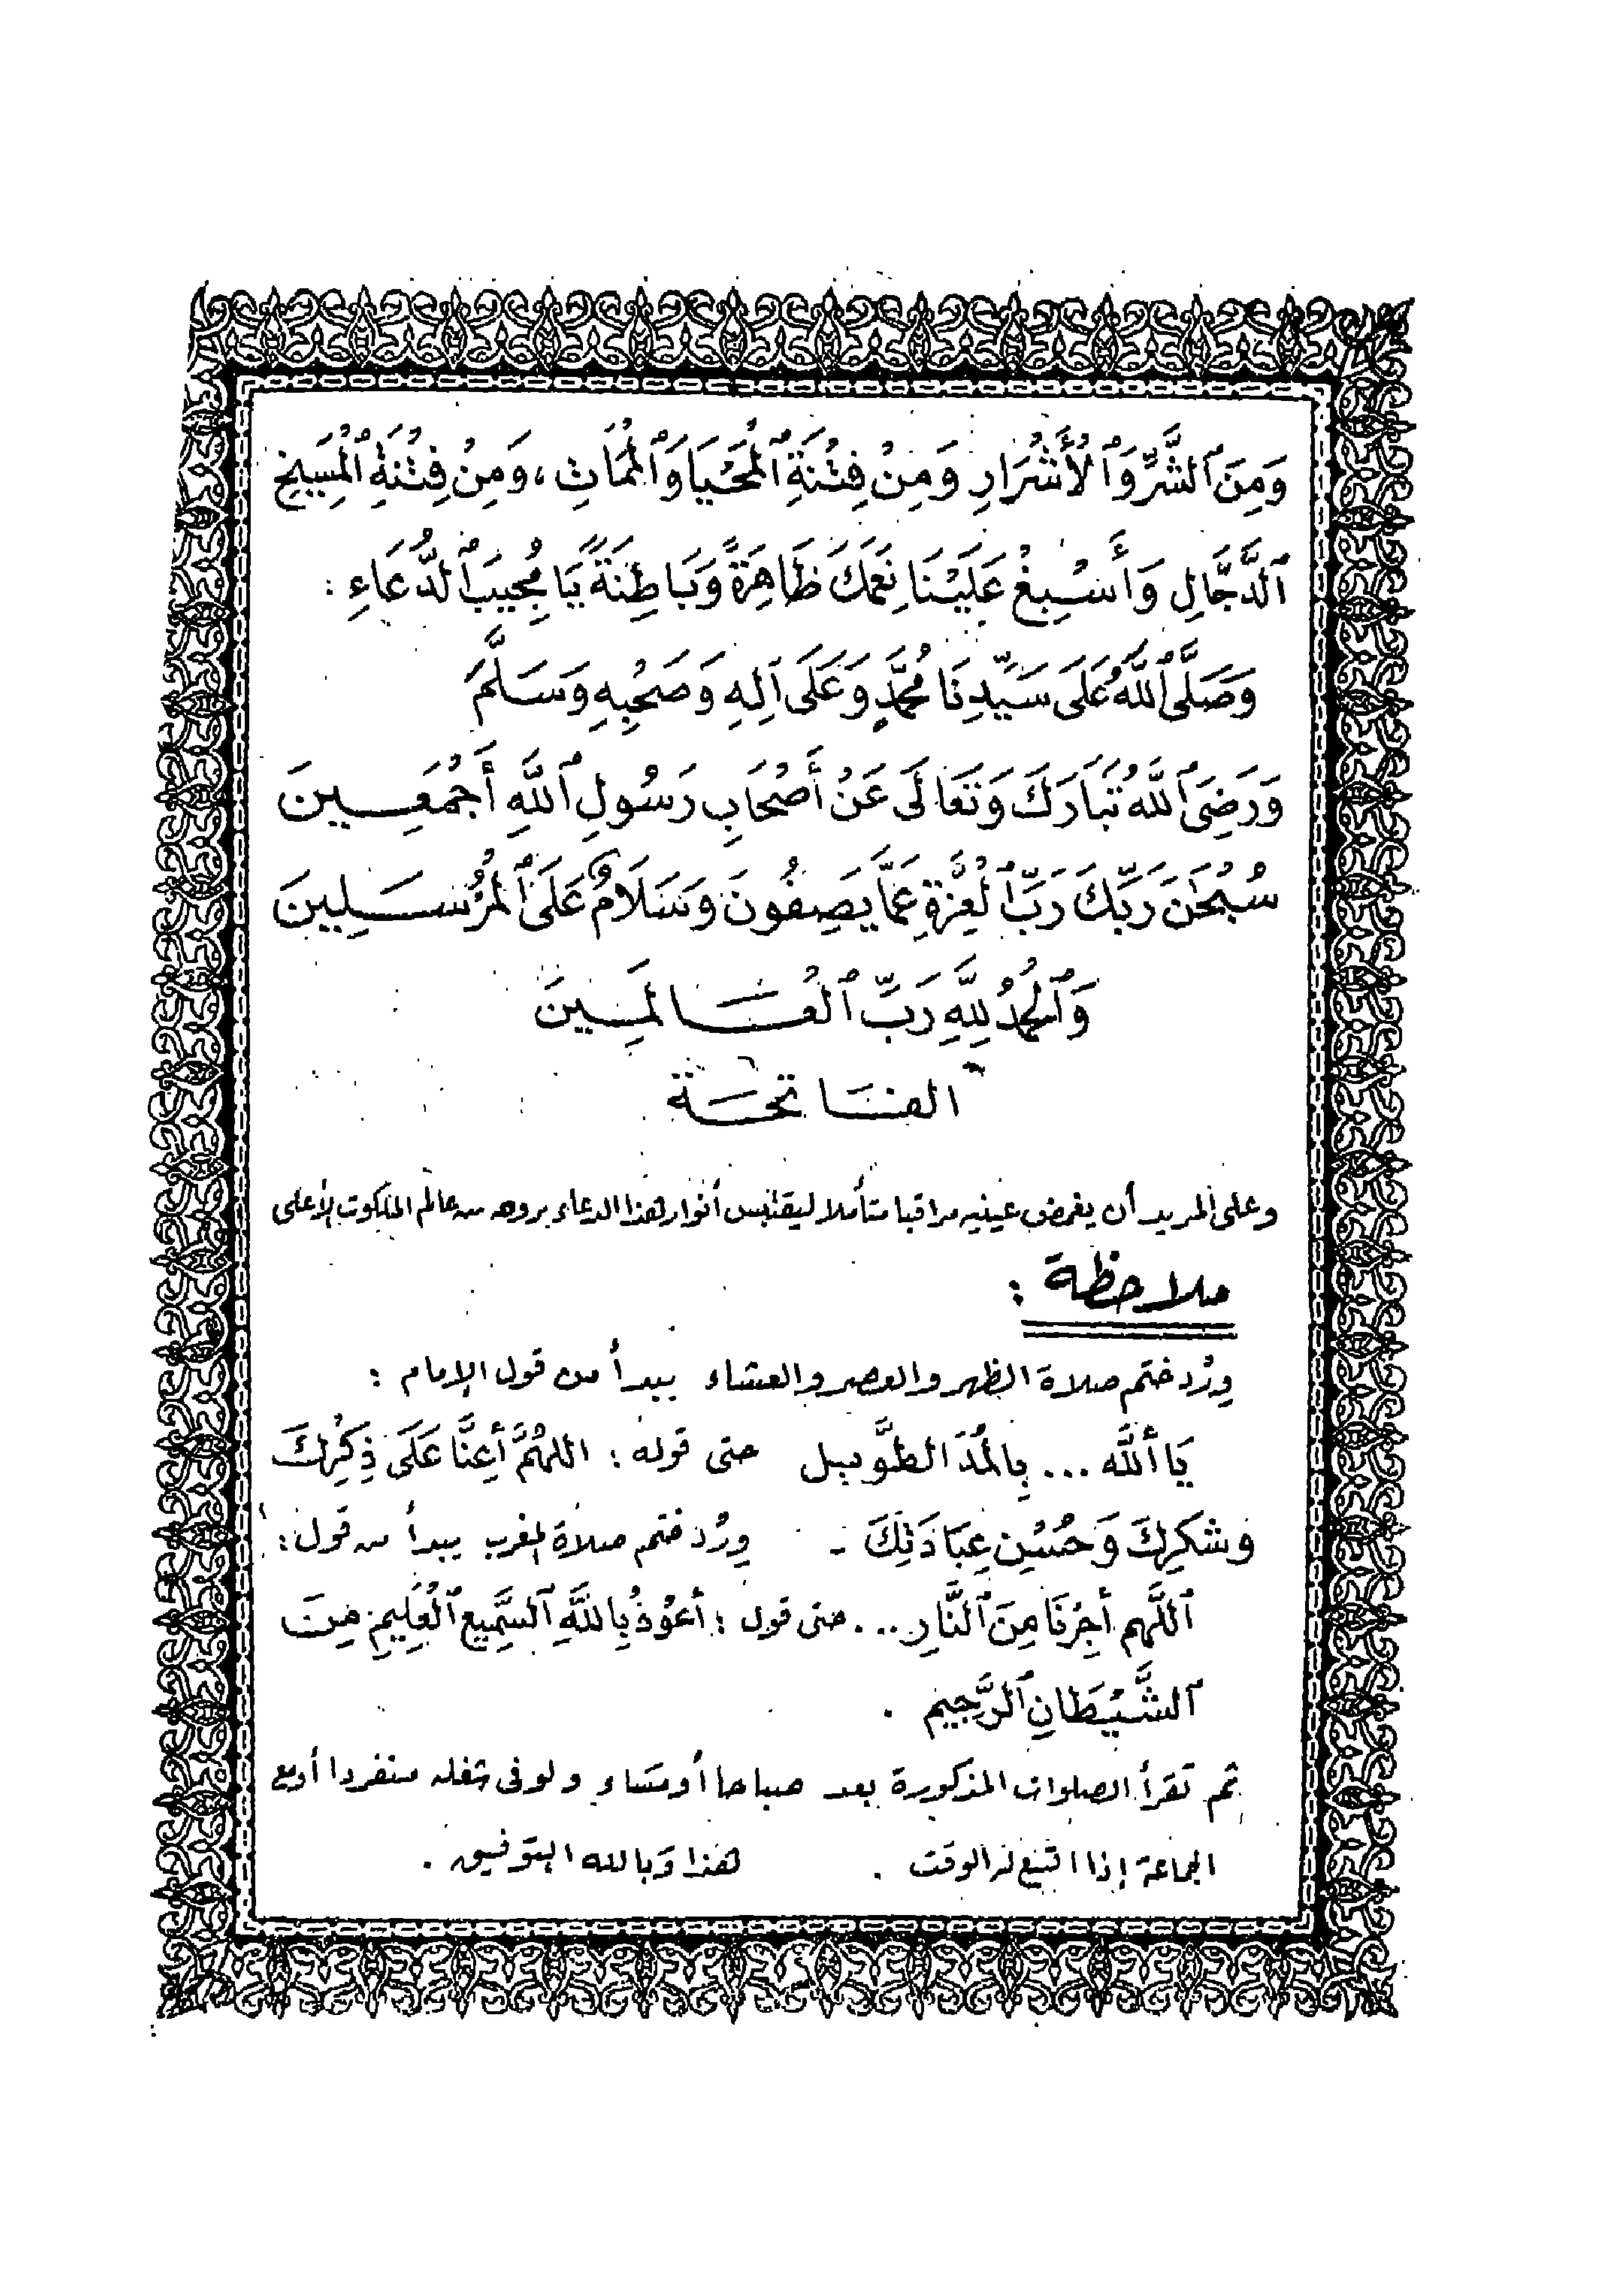 وَمِنَ ٱلشَّرِّ وَٱلْأَشْرَارِ وَمِنْ فِتْنَةِ ٱلْمَحْيَا وَٱلْمَمَاتِ، وَمِنْ فِتْنَةِ ٱلْمَسِيحِ
ٱلدَّجَّالِ وَأَسْبِغْ عَلَيْنَا نِعَمَكَ ظَاهِرَةً وَبَاطِنَةً يَا مُجِيبَ ٱلدُّعَاءِ :
وَصَلَّى ٱللَّهُ عَلَى سَيِّدِنَا مُحَمَّدٍ وَعَلَى آلِهِ وَصَحْبِهِ وَسَلَّمَ
وَرَضِيَ ٱللَّهُ تَبَارَكَ وَتَعَالَى عَنْ أَصْحَابِ رَسُولِ ٱللَّهِ أَجْمَعِينَ
سُبْحَٰنَ رَبِّكَ رَبِّ ٱلْعِزَّةِ عَمَّا يَصِفُونَ وَسَلَامٌ عَلَى ٱلْمُرْسَلِينَ
وَٱلْحَمْدُ لِلَّهِ رَبِّ ٱلْعَالَمِينَ
الفَاتحَة
وعلى المريد أن يغمض عينيه مراقبا متأملا ليقتبس أنوار هذا الدعاء بروحه من عالم الملكوت الأعلى
ملاحظة :
وِرْد ختم صلاة الظهر والعصر والعشاء يبدأ من قول الإمام :
يَا أللَّه ... بِالْمَدّ الطَّوِيل حتى قوله : اللهُمَّ أَعِنَّا عَلَى ذِكْرِكَ
وشكرِكَ وَحُسْنِ عِبَادَتِكَ - وِرْد ختم صلاة المغرب يبدأ من قول :
ٱللَّهم أَجِرْنَا مِنَ ٱلنَّارِ ... حتى قول : أَعُوْذُ بِاللَّهِ ٱلسَّمِيعِ ٱلْعَلِيمِ مِنَ
ٱلشَّيْطَانِ ٱلرَّجِيمِ .
ثم تقرأ الصلوات المذكورة بعد صباحا أو مساء ولو في شغله منفردا أو مع
الجماعة إذا اتسع له الوقت . هذا وَبالله التوفيق .